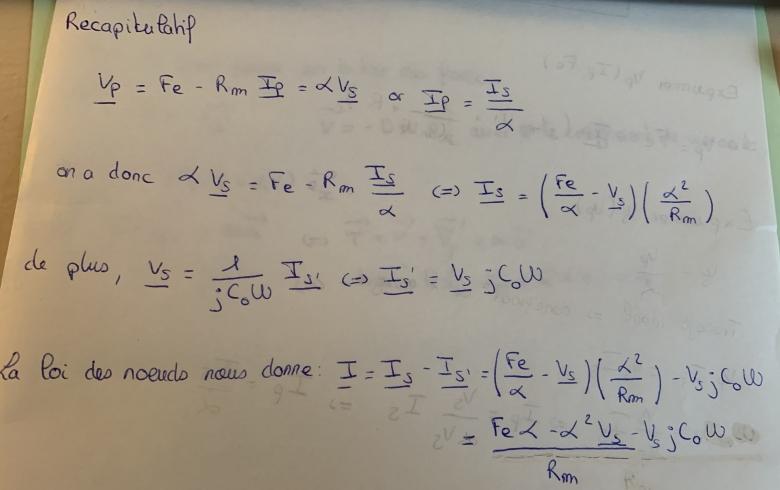 Recapitulatif
V̲p̲ = Fe - Rm I̲p̲ = α V̲s̲ or I̲p̲ = I̲s̲/α
on a donc α V̲s̲ = Fe - Rm I̲s̲/α <=> I̲s̲ = (Fe/α - V̲s̲)(α²/Rm)
de plus, V̲s̲ = 1/(jC₀ω) I̲s̲' <=> I̲s̲' = V̲s̲ jC₀ω
La loi des noeuds nous donne: I̲ = I̲s̲ - I̲s̲' = (Fe/α - V̲s̲)(α²/Rm) - Vs jC₀ω
= (Fe α - α² V̲s̲ - Vs jC₀ω)/Rm